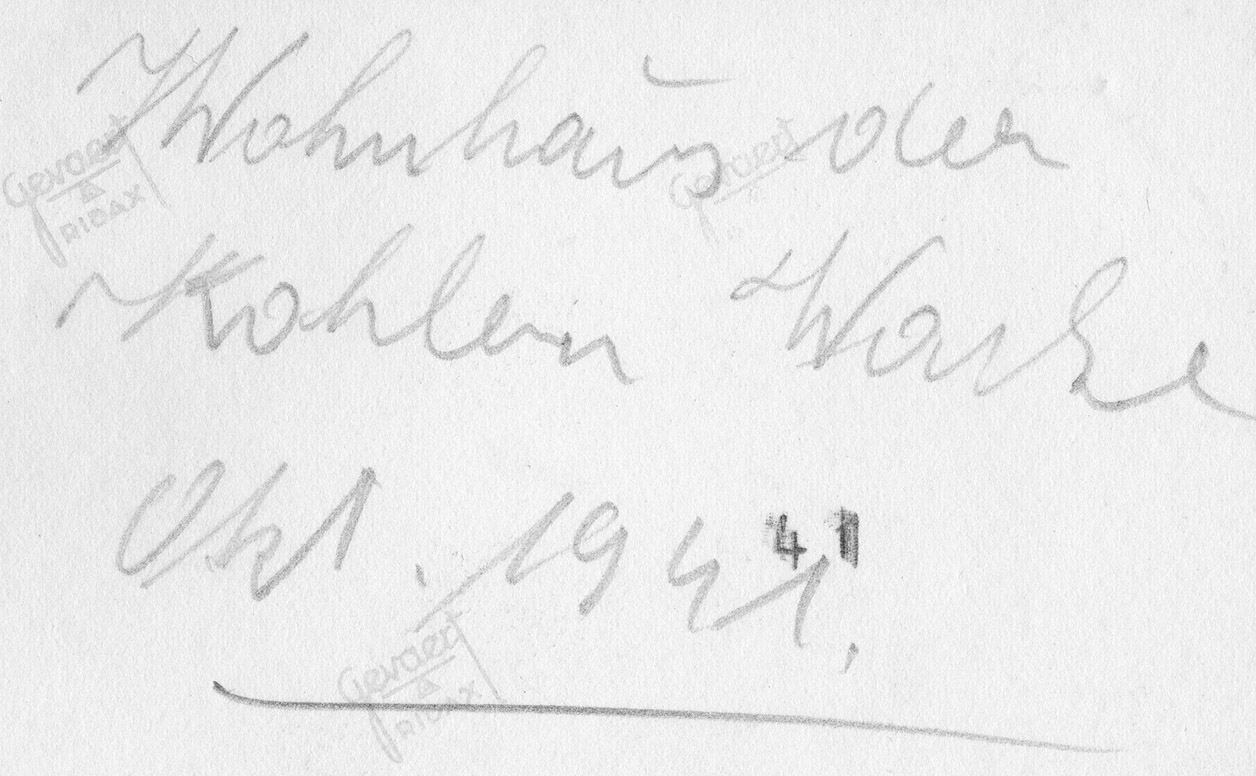 Wohnhaus der
Gevaert
RIDAX
Gevaert
Kohlen Wache
41
Okt. 1941.
Gevaert
RIDAX